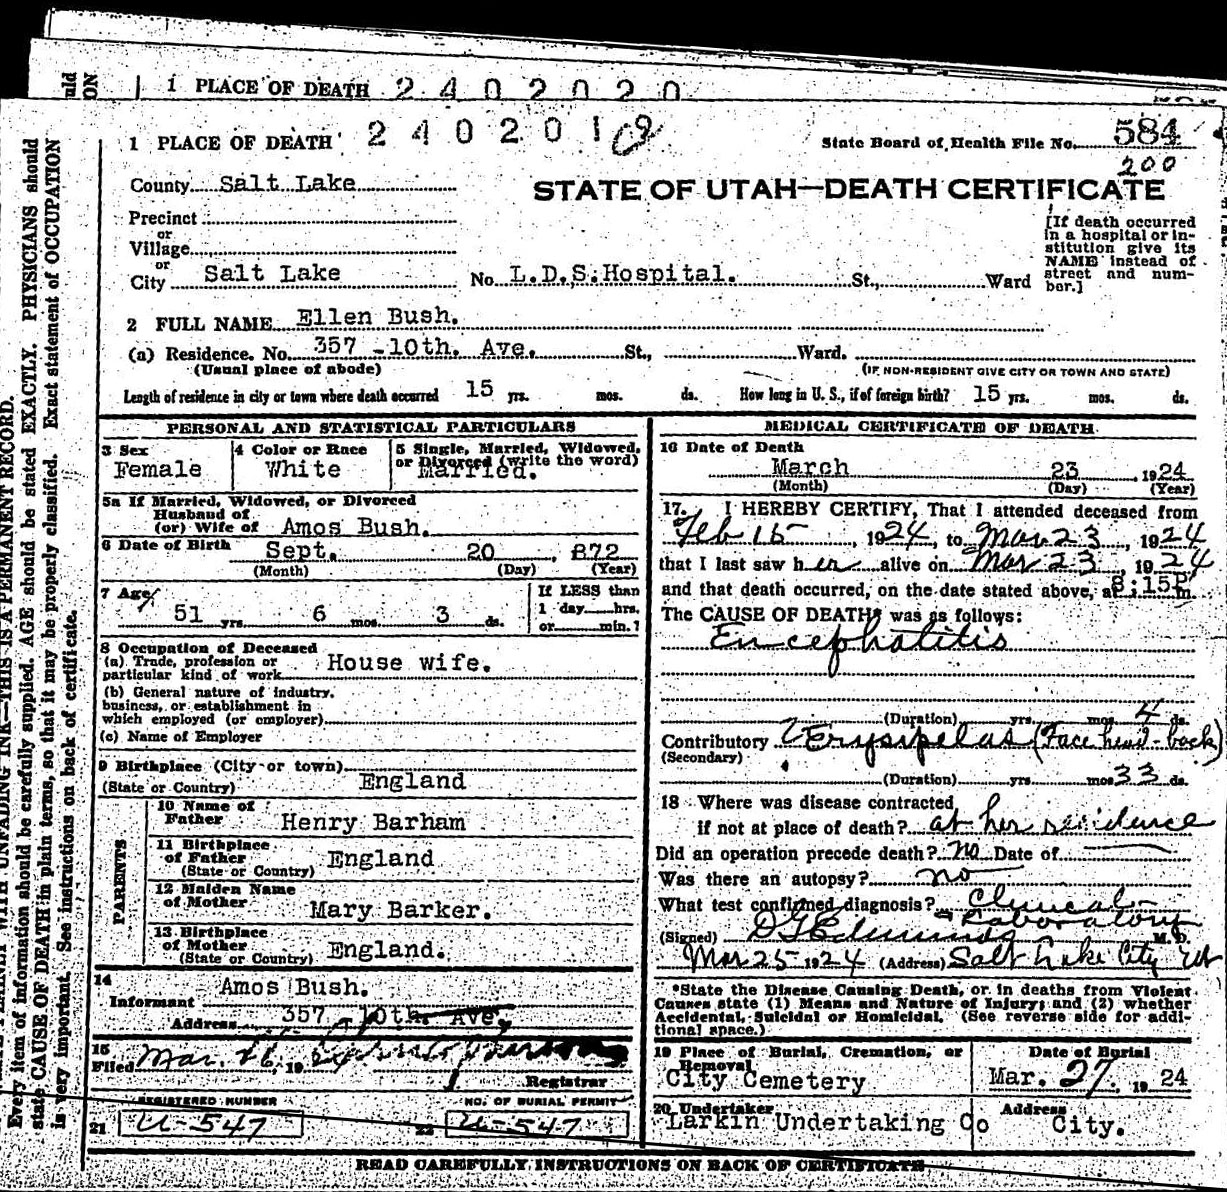 1 PLACE OF DEATH 2 4 0 2 0 2 0
1 PLACE OF DEATH 2 4 0 2 0 1 09
State Board of Health File No. 584
200
County Salt Lake
STATE OF UTAH—DEATH CERTIFICATE
Precinct
or
Village
or
City Salt Lake No. L.D.S. Hospital. St., Ward
[If death occurred in a hospital or institution give its NAME instead of street and number.]
2 FULL NAME Ellen Bush.
(a) Residence. No. 357 -10th. Ave. St., Ward.
(Usual place of abode) (IF NON-RESIDENT GIVE CITY OR TOWN AND STATE)
Length of residence in city or town where death occurred 15 yrs. mos. ds. How long in U. S., if of foreign birth? 15 yrs. mos. ds.
PERSONAL AND STATISTICAL PARTICULARS
3 Sex
Female
4 Color or Race
White
5 Single, Married, Widowed,
or Divorced (write the word)
Married.
5a If Married, Widowed, or Divorced
Husband of
(or) Wife of Amos Bush.
6 Date of Birth Sept. 20 , 872
(Month) (Day) (Year)
7 Age
51 yrs. 6 mos. 3 ds.
If LESS than
1 day hrs.
or min.?
8 Occupation of Deceased
(a) Trade, profession or
particular kind of work House wife.
(b) General nature of industry,
business, or establishment in
which employed (or employer)
(c) Name of Employer
9 Birthplace (City or town)
(State or Country) England
PARENTS
10 Name of
Father Henry Barham
11 Birthplace
of Father England
(State or Country)
12 Maiden Name
of Mother Mary Barker.
13 Birthplace
of Mother England.
(State or Country)
14
Informant Amos Bush.
Address 357 10th. Ave.
15
Filed Mar. 26, 1924
Registrar
REGISTERED NUMBER
21 U-547
NO. OF BURIAL PERMIT
22 U-547
MEDICAL CERTIFICATE OF DEATH
16 Date of Death
March 23 , 1924
(Month) (Day) (Year)
17. I HEREBY CERTIFY, That I attended deceased from
Feb 15 , 1924, to Mar 23, 1924
that I last saw her alive on Mar 23, 1924
and that death occurred, on the date stated above, at 8:15P m.
The CAUSE OF DEATH* was as follows:
Encephalitis
(Duration) yrs. mos. 4 ds.
Contributory Erysipelas (Face head - back)
(Secondary)
(Duration) yrs. mos 33 ds.
18 Where was disease contracted
if not at place of death? at her residence
Did an operation precede death? no Date of
Was there an autopsy? no
What test confirmed diagnosis? Clinical -
Laboratory
(Signed) D G Edmunds M. D.
Mar 25 1924 (Address) Salt Lake City Ut
*State the Disease Causing Death, or in deaths from Violent
Causes state (1) Means and Nature of Injury; and (2) whether
Accidental, Suicidal or Homicidal. (See reverse side for addi-
tional space.)
19 Place of Burial, Cremation, or
Removal
City Cemetery
Date of Burial
Mar. 27. 1924
20 Undertaker
Larkin Undertaking Co
Address
City.
READ CAREFULLY INSTRUCTIONS ON BACK OF CERTIFICATE
WITH UNFADING INK—THIS IS A PERMANENT RECORD.
Every item of information should be carefully supplied. AGE should be stated EXACTLY. PHYSICIANS should
state CAUSE OF DEATH in plain terms, so that it may be properly classified. Exact statement of OCCUPATION
is very important. See instructions on back of certificate.